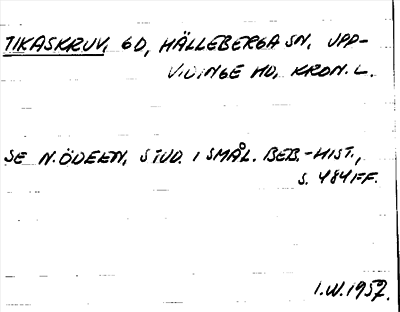 TIKASKRUV, GD, HÄLLEBERGA SN, UPP-
VIDINGE HD, KRON. L.
SE N. ÖDEEN, STUD. I SMÅL. BEB.-HIST.,
S. 484 FF.
I.W. 1957.